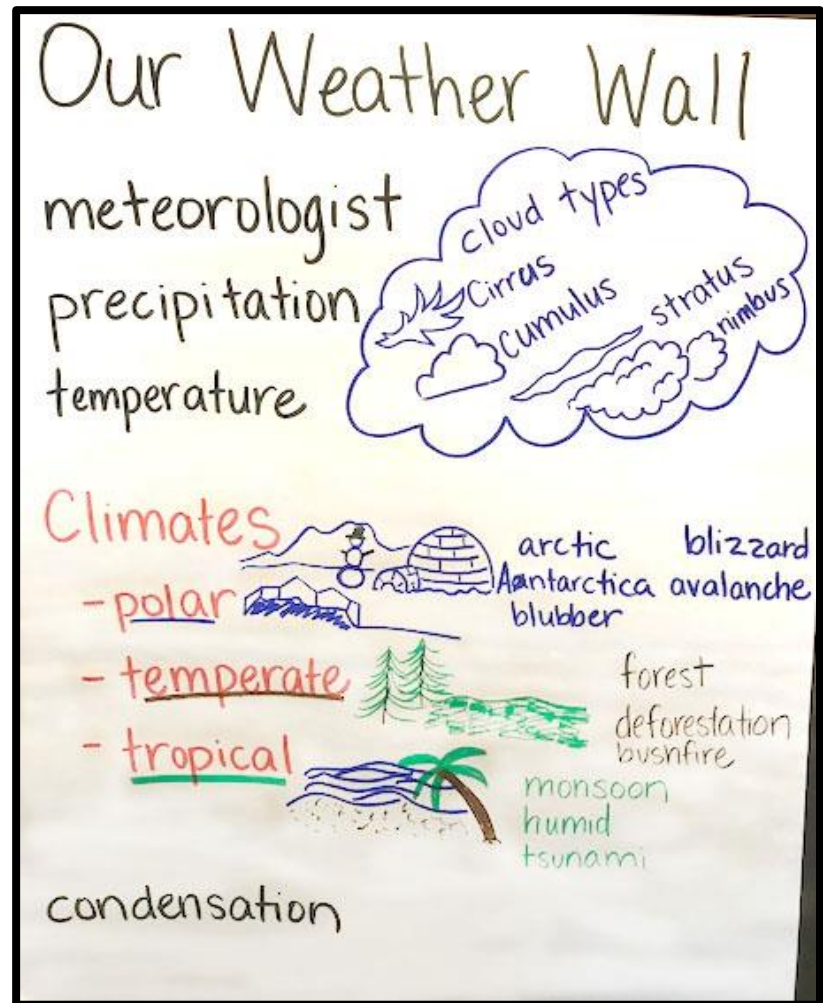 Our Weather Wall
meteorologist
precipitation
temperature
cloud types
Cirrus
Cumulus
stratus
nimbus
Climates
- polar
arctic blizzard
Aantarctica avalanche
blubber
- temperate
forest
deforestation
bushfire
- tropical
monsoon
humid
tsunami
condensation